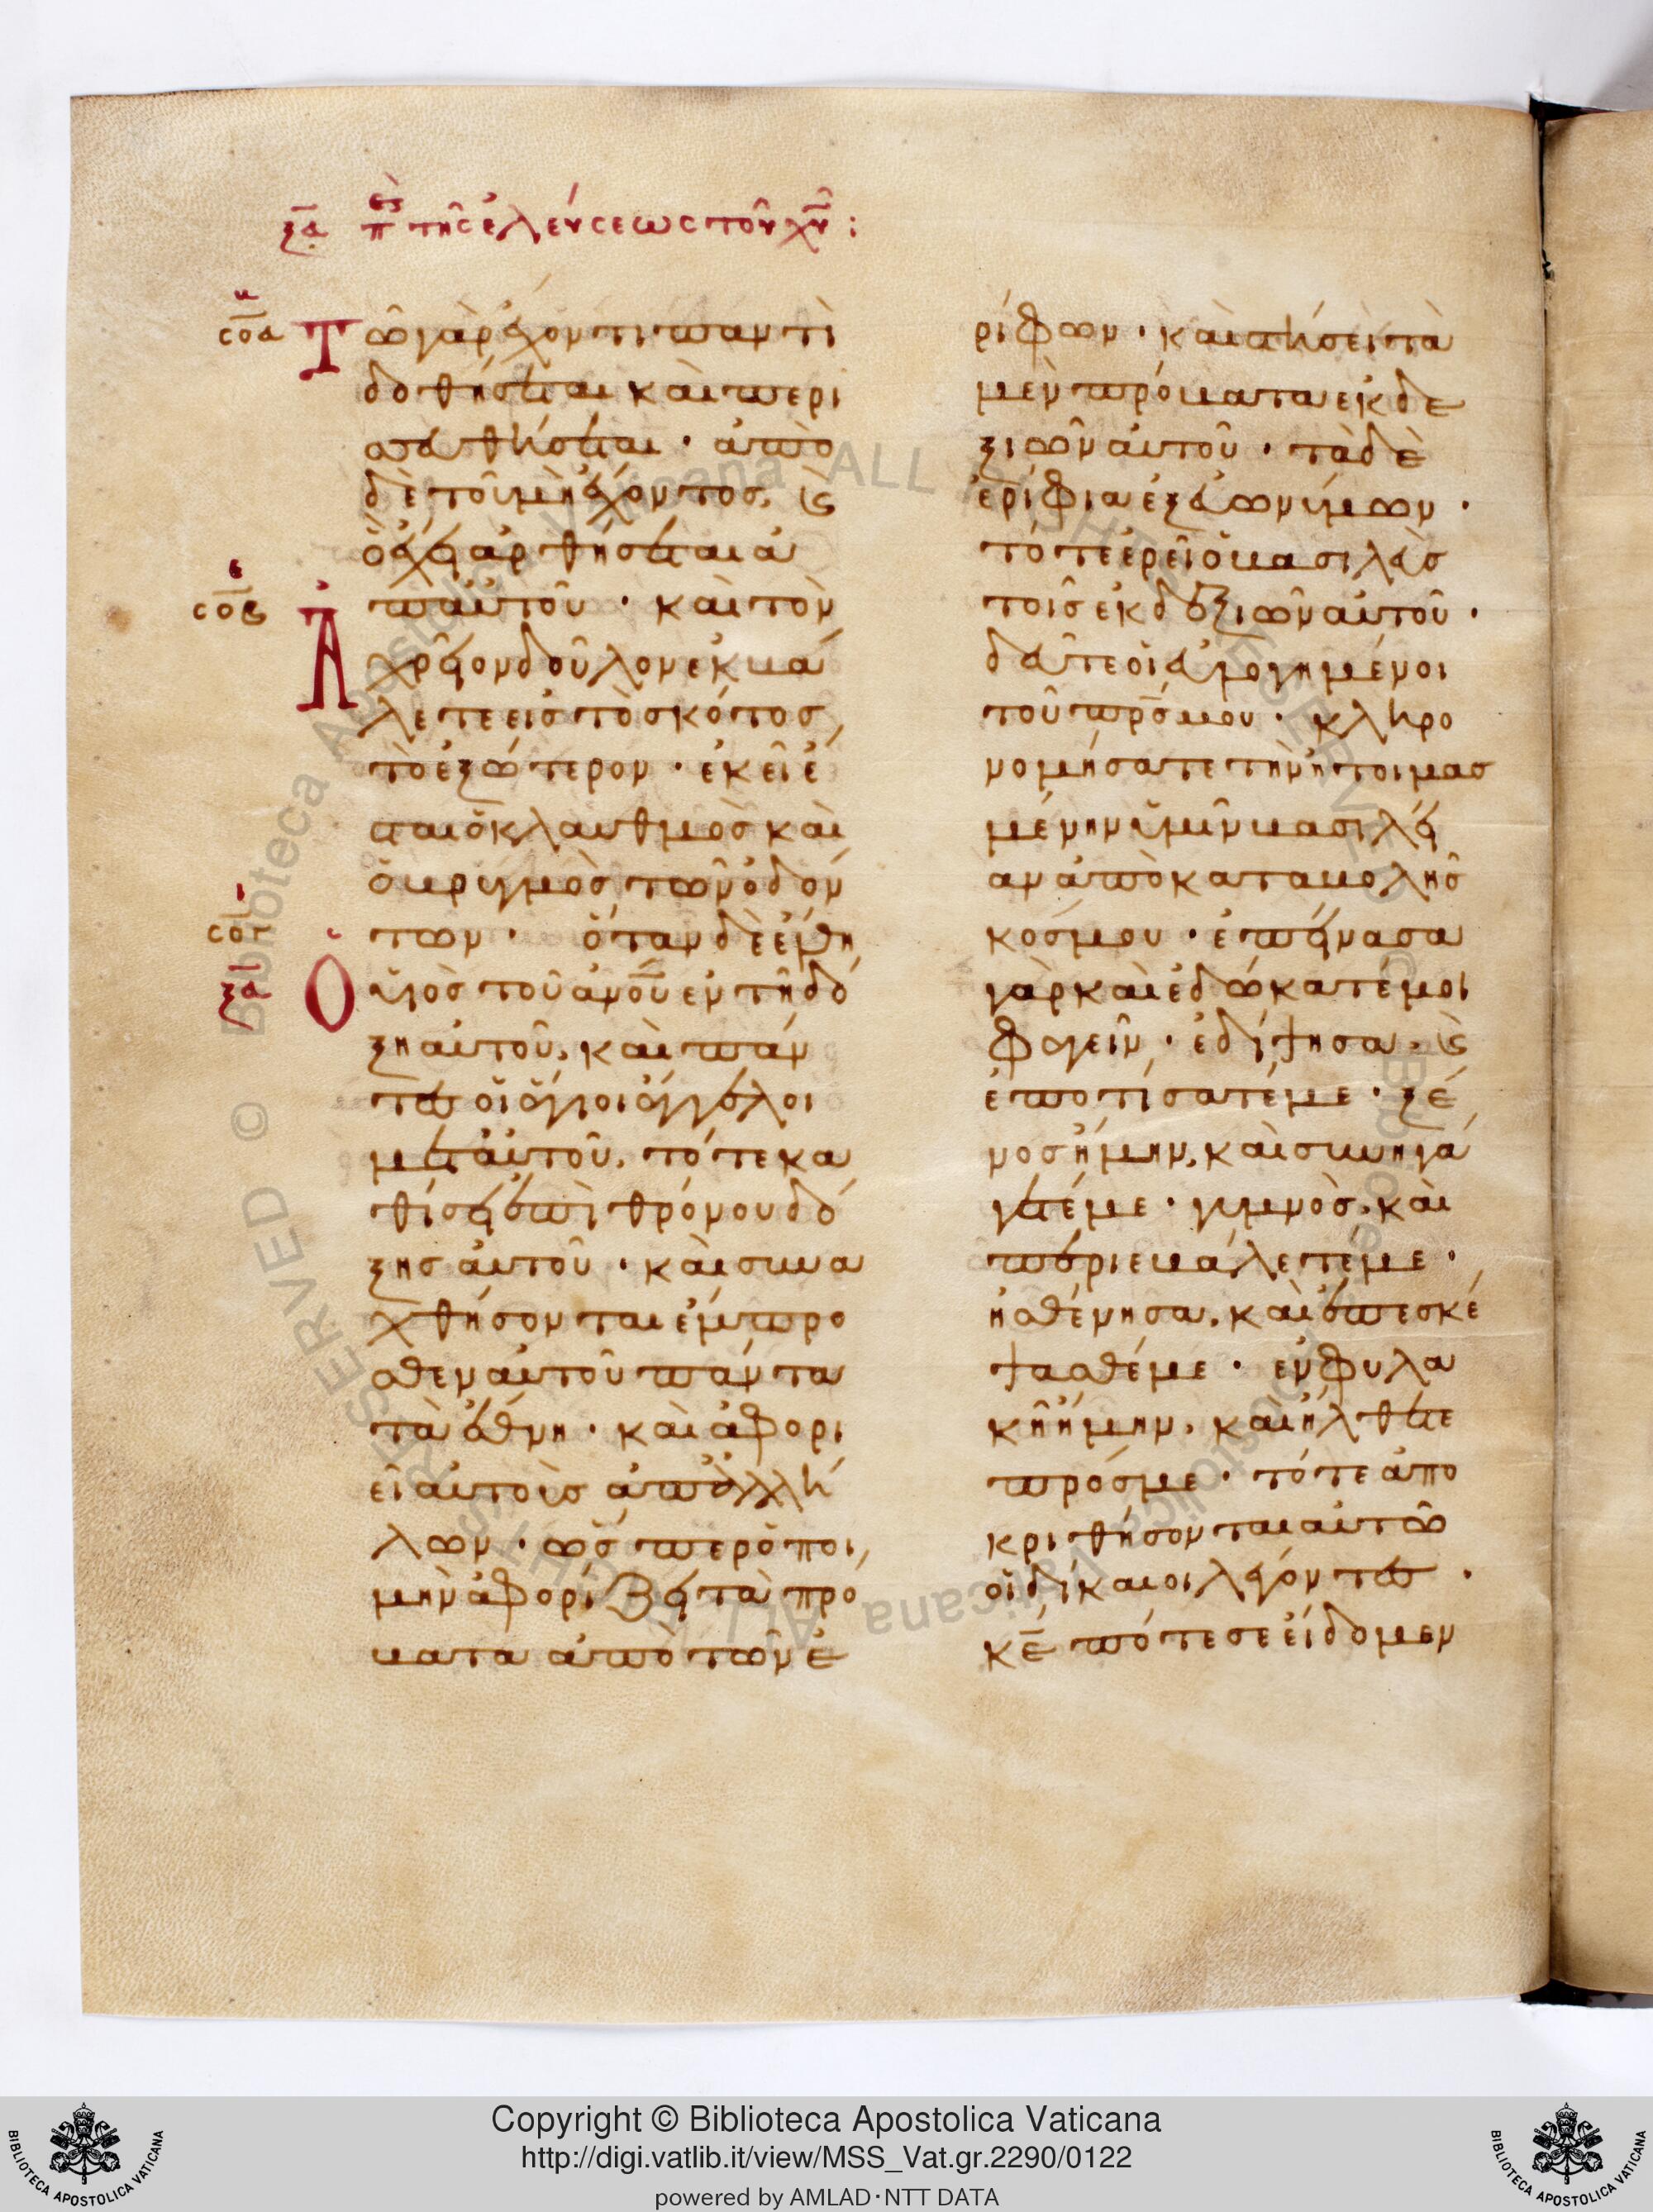 ξα περὶ τῆς ἐλεύσεως τοῦ χυ :
σοα Τῶ γὰρ ἔχοντι παντὶ
δοθήσεται καὶ περι
σσευθήσεται · ἀπὸ
δὲ τοῦ μὴ ἔχοντος, ϗ
ὃ ἔχει ἀρθήσεται ἀ
σοβ π αὐτοῦ · καὶ τὸν
Ἀχρεῖον δοῦλον ἐκβά
λετε εἰς τὸ σκότος
τὸ ἐξώτερον · ἐκεῖ ἔ
σται ὁ κλαυθμὸς καὶ
ὁ βρυγμὸς τῶν ὀδόν
σογ των · ὅταν δὲ ἔλθη
ξα Ὁ υἱὸς τοῦ ανου ἐν τῆ δό
ξη αὐτοῦ, καὶ πάν
τες οἱ ἅγιοι ἄγγελοι
μετ αὐτοῦ, τότε κα
θίσει ἐπὶ θρόνου δό
ξης αὐτοῦ · καὶ συνα
χθήσονται ἔμπρο
σθεν αὐτοῦ πάντα
τὰ ἔθνη · καὶ ἀφορι
εῖ αὐτοὺς ἀπ ἀλλή
λων · ὥσπερ ὁ ποι
μὴν ἀφορίζει τὰ πρό
βατα ἀπὸ τῶν ἐ
ρίφων · καὶ στήσει τὰ
μὲν πρόβατα ἐκ δε
ξιῶν αὐτοῦ · τὰ δὲ
ἐρίφια ἐξ εὐωνύμων ·
τότε ἐρεῖ ὁ βασιλεὺς
τοῖς ἐκ δεξιῶν αὐτοῦ ·
δεῦτε οἱ εὐλογημένοι
τοῦ πρς μου · κληρο
νομήσατε τὴν ἡτοιμασ
μένην ὑμῖν βασιλεί
αν ἀπὸ καταβολῆς
κόσμου · ἐπείνασα
γὰρ καὶ ἐδώκατέ μοι
φαγεῖν · ἐδίψησα, ϗ
ἐποτίσατέ με · ξέ
νος ἤμην, καὶ συνηγά
γετέ με · γυμνὸς, καὶ
περιεβάλετέ με ·
ἠσθένησα, καὶ ἐπεσκέ
ψασθέ με · ἐν φυλα
κῆ ἤμην, καὶ ἤλθετε
πρός με · τότε ἀπο
κριθήσονται αὐτῶ
οἱ δίκαιοι λέγοντες ·
κε πότε σε εἴδομεν
Copyright © Biblioteca Apostolica Vaticana
http://digi.vatlib.it/view/MSS_Vat.gr.2290/0122
powered by AMLAD·NTT DATA
BIBLIOTECA APOSTOLICA VATICANA
BIBLIOTECA APOSTOLICA VATICANA